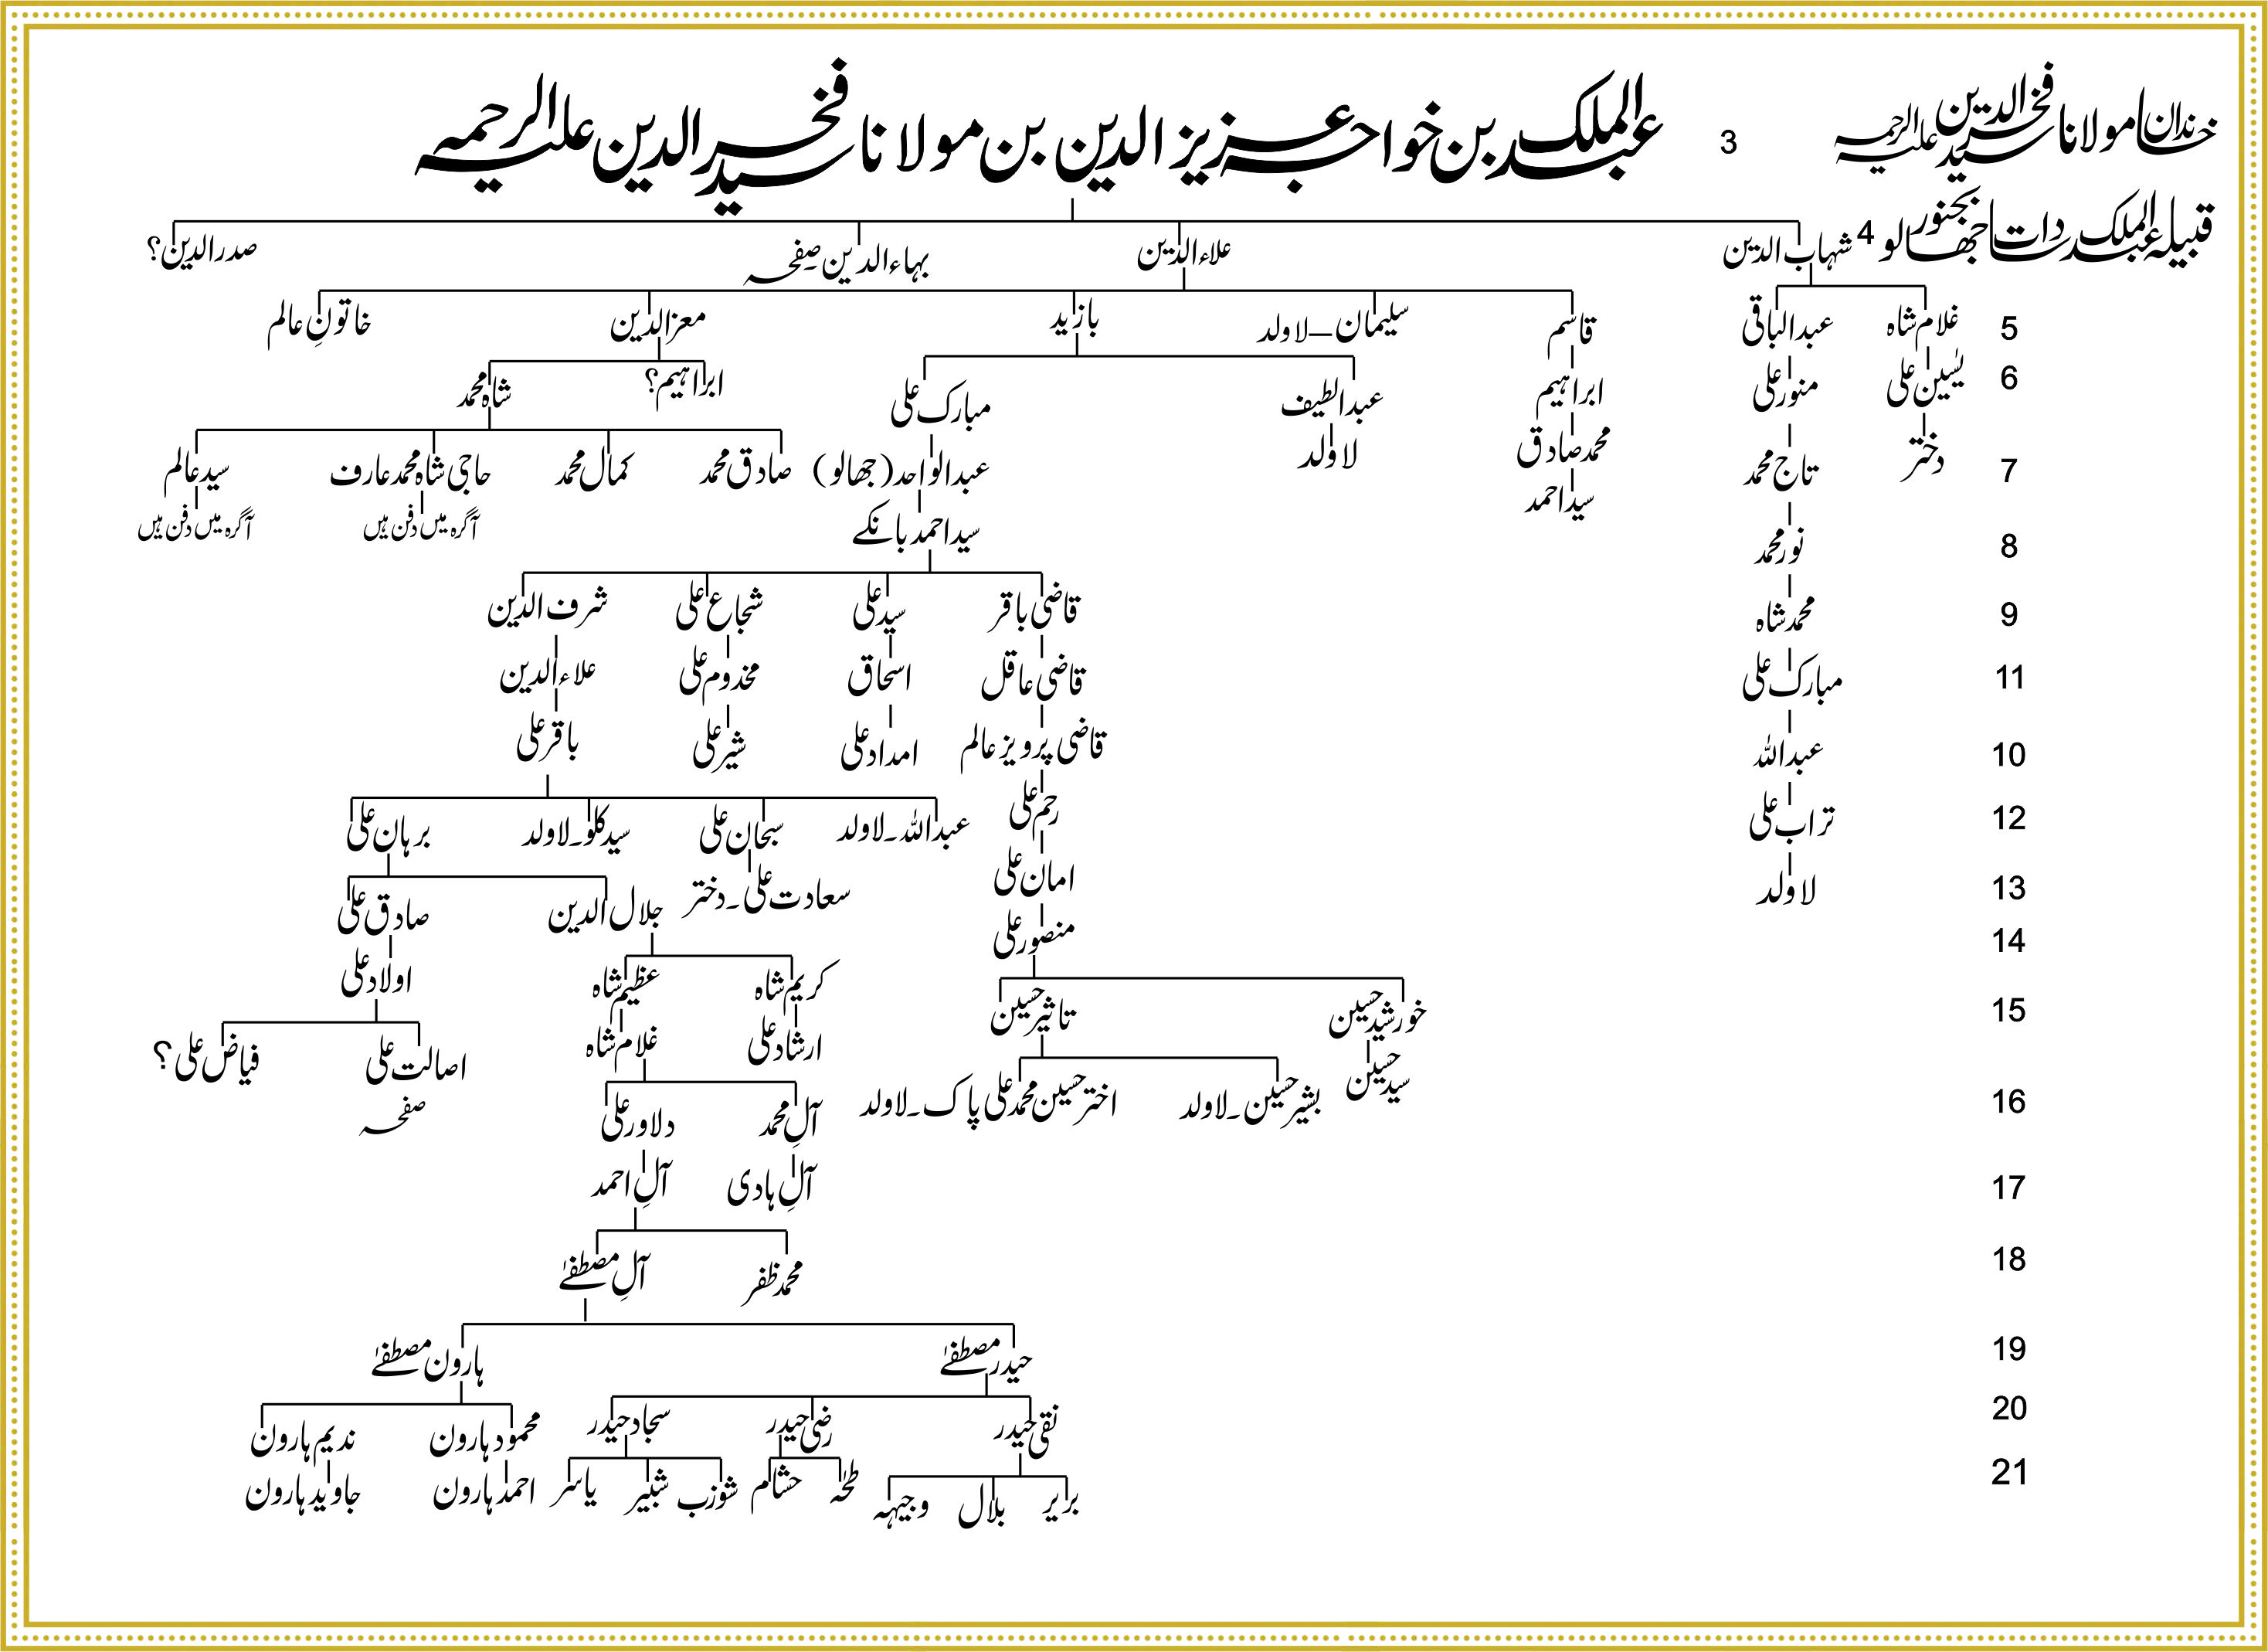 خاندان مولانا سید فخرالدین علیہ الرحمہ
3 عبدالملک بن خواجہ عزیز الدین بن مولانا سید فخرالدین علیہ الرحمہ
قبیلہ عبدالملک سادات بجنور جھالو
4 شہاب الدین علاءالدین بہاءالدین۔صفحہ صدرالدین؟
5 غلام شاہ عبدالباقی قاسم سلیمان–لاولد بازید معزالدین خاتونِ عالم
6 یٰسین علی منور علی ابراہیم عبدالطیف مبارک علی ابراہیم؟ شاہ محمد
7 دختر تاج محمد محمد صادق لاولد عبدالواحد (جھالو) صادق محمد کمال محمد حاجی شاہ محمد عارف سید عالم
سید احمد آگرہ میں دفن ہیں آگرہ میں دفن ہیں
8 نور محمد سید احمد بانکے
9 محمد شاہ قاضی باقر سید علی شجاع علی شرف الدین
11 مبارک علی قاضی عاقل اسحاق مخدوم علی علاءالدین
10 عبداللہ قاضی پرویز عالم امداد علی شیر علی باقر علی
12 تراب علی رحم علی عبداللہ۔لاولد سبحان علی سید کلو۔لاولد برہان علی
13 لاولد امان علی سعادت علی۔دختر جلال الدین صادق علی
14 منصور علی کریم شاہ عظیم شاہ اولاد علی
15 خورشید حسین تاثیر حسین ارشاد علی غلام شاہ اصالت علی فیاض علی؟
سید حسین صفحہ
16 بشیر حسین۔لاولد اختر حسین محمد علی پاک۔لاولد آلِ محمد دلاور علی
17 آلِ ہادی آلِ احمد
18 محمد ظفر آلِ مصطفےٰ
19 حیدر مصطفےٰ ہارون مصطفےٰ
20 نقی حیدر رضی حیدر سجاد حیدر محمود ہارون ندیم ہارون
21 بریر بلال وجیہہ طحٰہ حشام شوزب شبیر یاسر احمد ہارون جاوید ہارون